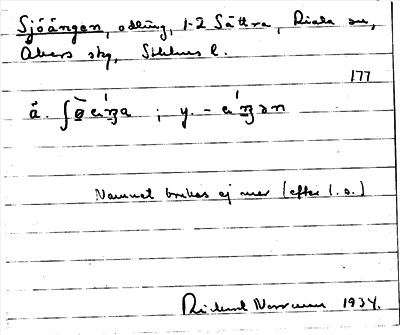 Sjöängen, odling, 1-2 Sättra, Riala sn,
Åkers skg, Sthlms l.
177
ä. ; y. -
Namnet brukas ej mer (efter l.s.)
Rickard 1934.